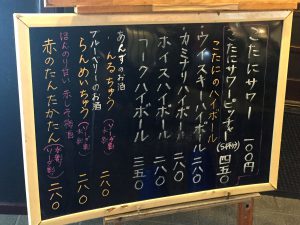 こたにサワー 一〇〇円
こたにサワーピッチャー (5杯分) 四五〇
こたにのハイボール
ウイスキーハイボール 二八〇
カミナリハイボール 二八〇
ホイスハイボール 二八〇
コークハイボール 三五〇
あんずのお酒
あんずちゅう 二八〇
ブルーベリーのお酒
らんめいちゅう 二八〇
ほんのり甘い 赤しそ焼酎
赤のたんたかたん 二八〇